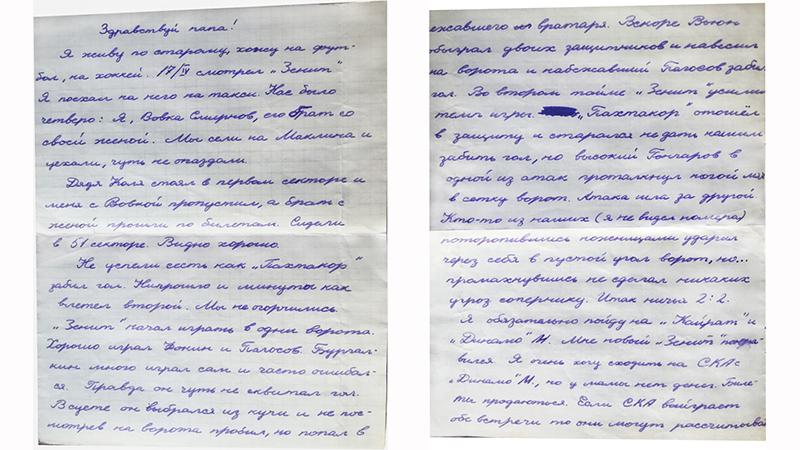 Здравствуй папа!
Я живу по старому, хожу на фут-
бол, на хоккей. 17/IV смотрел „Зенит"
Я поехал на него на такси. Нас было
четверо: Я, Вовка Смирнов, его брат со
своей женой. Мы сели на Маклина и
уехали, чуть не опаздали.
Дядя Коля стоял в первом секторе и
меня с Вовкой пропустил, а брат с
женой прошли по билетам. Сидели
в 51 секторе. Видно хорошо.
Не успели сесть как „Пахтакор"
забил гол. Непрошло и минуты как
влетел второй. Мы не огорчились.
„Зенит" начал играть в одни ворота.
Хорошо играл Фокин и Пагосов. Бурчал-
кин много играл сам и часто ошибал-
ся. Правда он чуть не сквитал гол.
В суете он выбрался из кучи и не пос-
мотрев на ворота пробил, но попал в
ежавшего вратаря. Вскоре Вьюн
обыграл двоих защитников и навесил
на ворота и набежавший Пагосов забил
гол. Во втором тайме „Зенит" усилил
темп игры. „Пахтакор" отошёл
в защиту и старался не дать нашим
забить гол, но высокий Гончаров в
одной из атак протолкнул ногой мяч
в сетку ворот. Атака шла за другой.
Кто-то из наших (я не видел номера)
поторопившись ножницами ударил
через себя в пустой угол ворот, но...
промахнувшись не сделал никаких
угроз сопернику. Итак ничья 2:2.
Я обязательно пойду на „Кайрат" и
„Динамо" М. Мне новый „Зенит" понра-
вился. Я очень хочу сходить на СКА с
„Динамо" М., но у мамы нет денг. Биле-
ты продаються. Если СКА выиграет
обе встречи то они могут рассчитыва